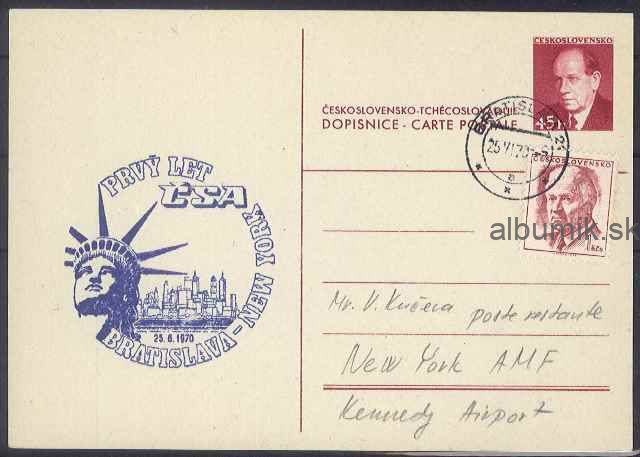 ČESKOSLOVENSKO
45 h
ČESKOSLOVENSKO-TCHÉCOSLOVAQUIE
DOPISNICE - CARTE POSTALE
BRATISLAVA
25.VI.70
ČESKOSLOVENSKO
1 Kčs
albumik.sk
PRVÝ LET
ČSA
BRATISLAVA-NEW YORK
25. 6. 1970
Mr. V. Kučera poste restante
New York AMF
Kennedy Airport